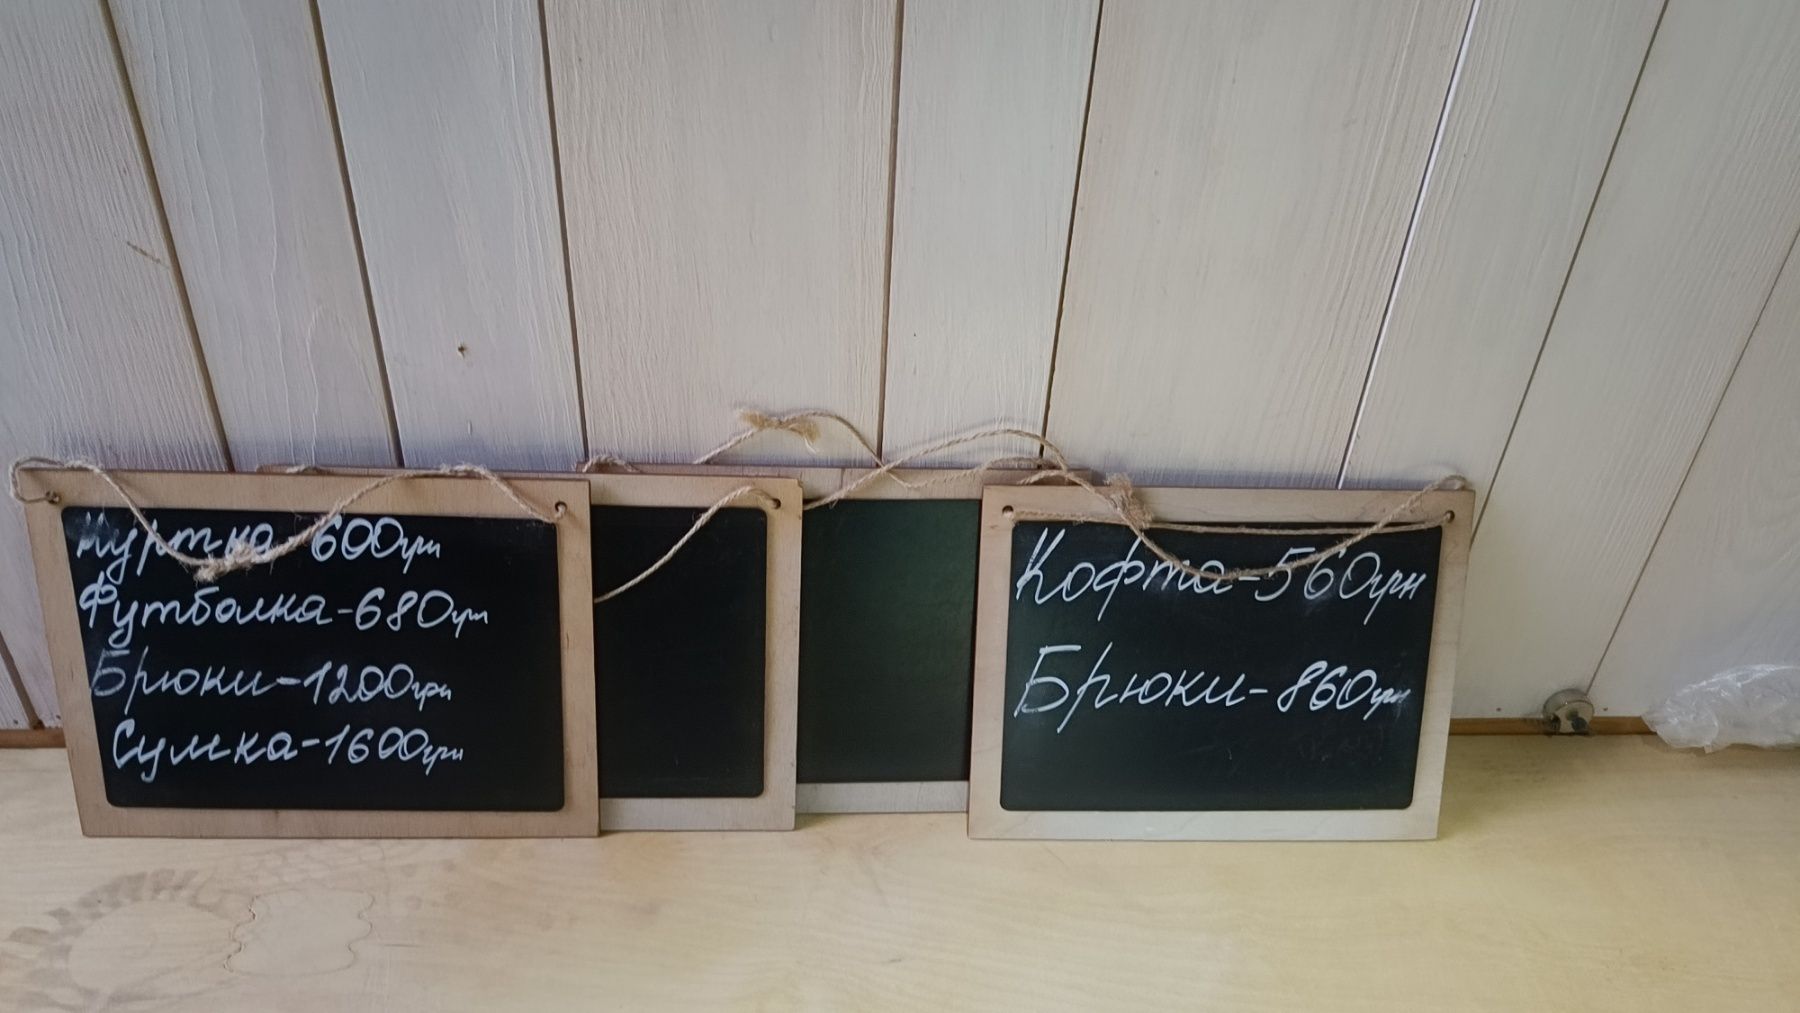 Куртка-600грн
Футболка-680грн
Брюки-1200грн
Сумка-1600грн
Кофта-560грн
Брюки-860грн